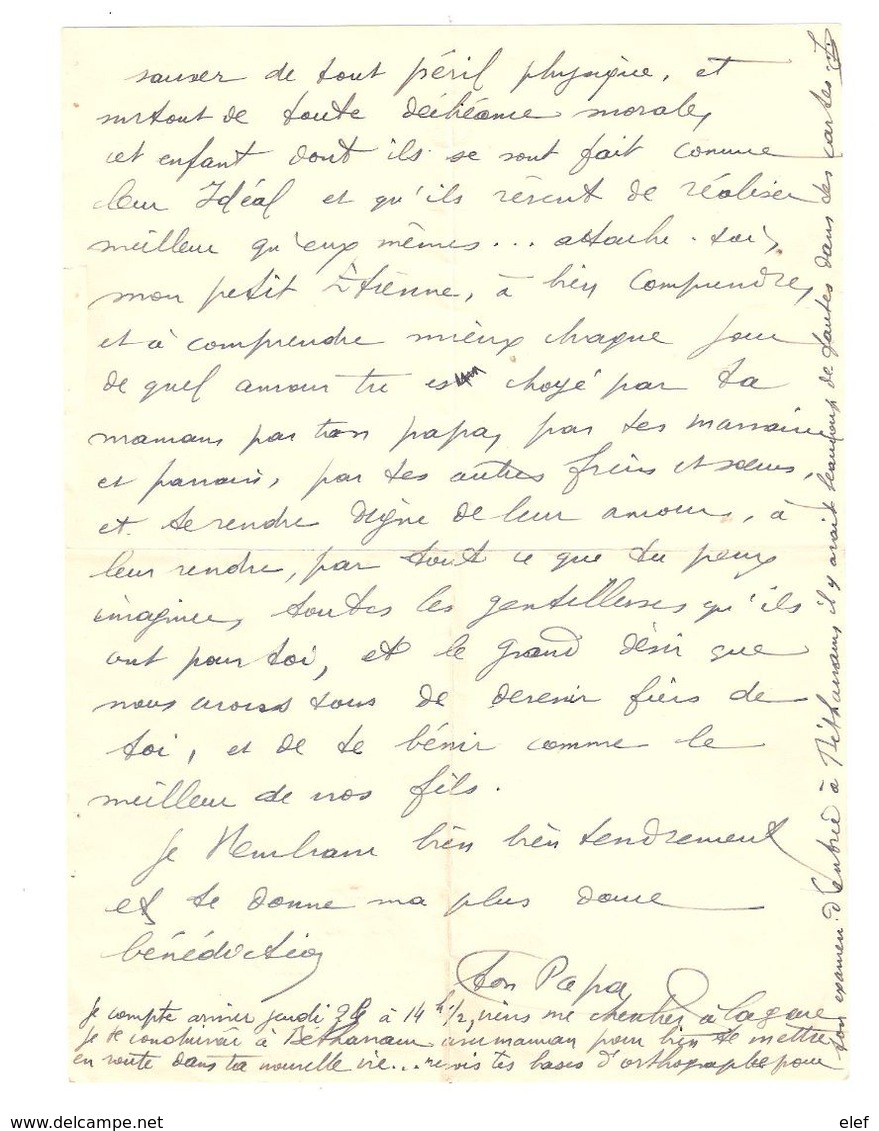 sauver de tout péril physique, et
surtout de toute déchéance morale,
cet enfant dont ils se sont fait comme
leur Idéal et qu'ils rêvent de réaliser
meilleur qu'eux mêmes... attache-toi,
mon petit Étienne, à bien comprendre,
et à comprendre mieux chaque jour
de quel amour tu es choyé par ta
maman, par ton papa, par tes marraine
et parrain, par tes autres frères et sœurs,
et te rendre digne de leur amour, à
leur rendre, par tout ce que tu peux
imaginer, toutes les gentillesses qu'ils
ont pour toi, et le grand désir que
nous avons tous de devenir fiers de
toi, et de te bénir comme le
meilleur de nos fils.
Je t'embrasse bien bien tendrement
et te donne ma plus douce
bénédiction
Ton Papa
Je compte arriver jeudi à 14 h 1/2, viens me chercher à la gare
je te conduirai à Bétharram avec maman pour bien te mettre
en route dans ta nouvelle vie... revois tes bases d'orthographe pour
ton examen d'entrée à Bétharram il y avait beaucoup de fautes dans tes cartes
elef